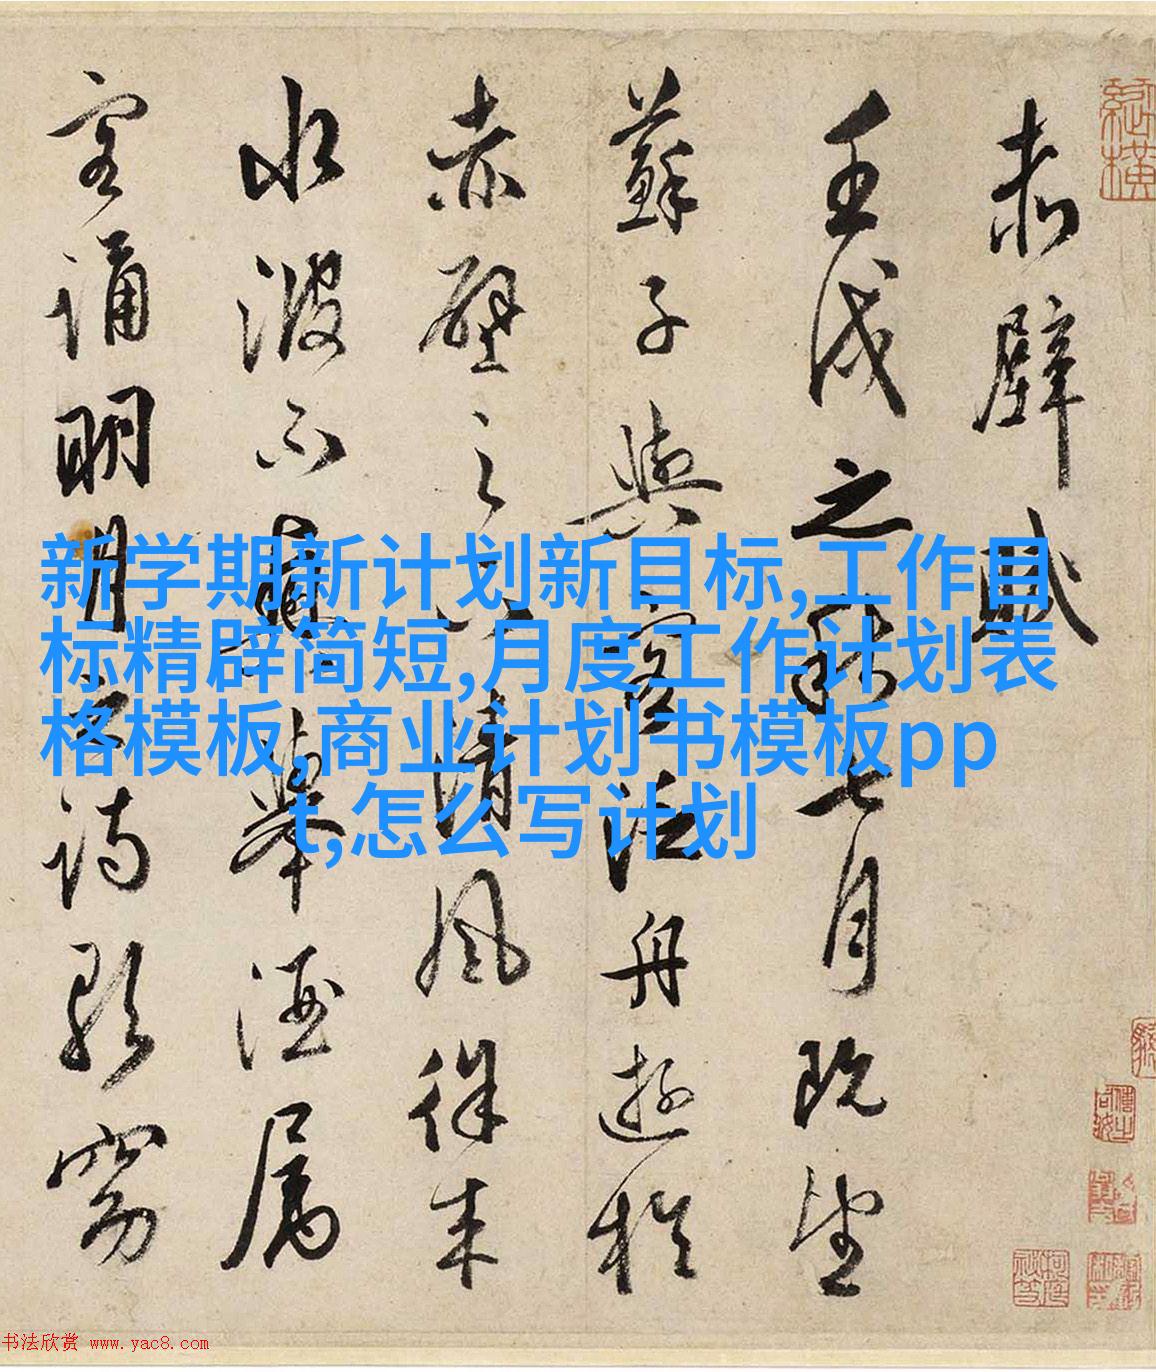 赤壁賦
壬戌之秋七月既望
蘇子與客泛舟遊於
赤壁之下清風徐來
水波不興舉酒屬
客誦明月之詩歌窈
新学期新计划新目标,工作目
标精辟简短,月度工作计划表
格模板,商业计划书模板pp
t,怎么写计划
书法欣赏 www.yac8.com